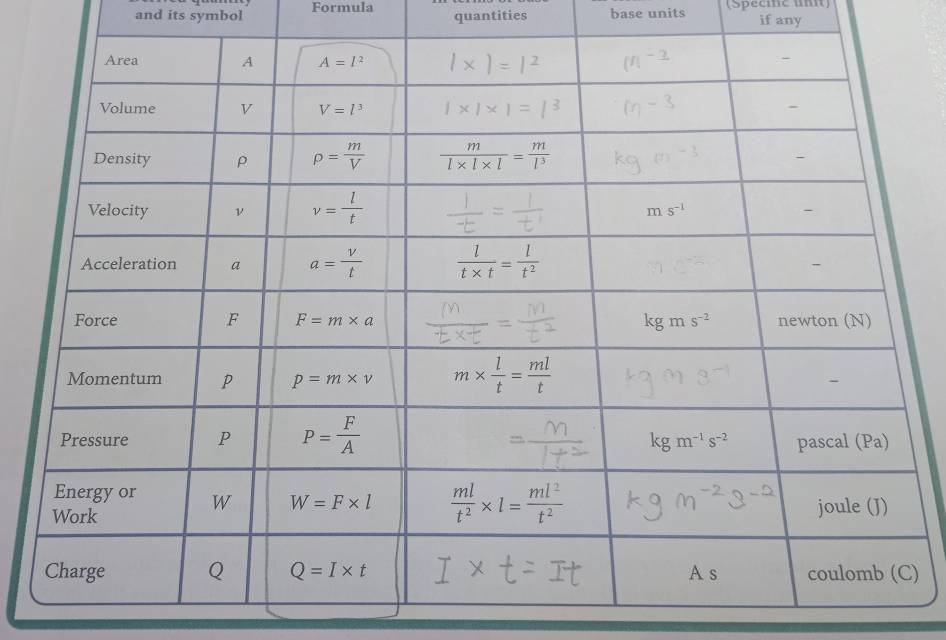 and its symbol Formula quantities base units (Specific unit) if any
Area A A = l² l × l = l² m⁻² –
Volume V V = l³ l × l × l = l³ m⁻³ –
Density ρ ρ = m/V m/(l × l × l) = m/l³ kg m⁻³ –
Velocity v v = l/t l/t = l/t¹ m s⁻¹ –
Acceleration a a = v/t l/(t × t) = l/t² m s⁻² –
Force F F = m × a m/(t × t) = m/t² kg m s⁻² newton (N)
Momentum p p = m × v m × l/t = ml/t kg m s⁻¹ –
Pressure P P = F/A = m/lt² kg m⁻¹ s⁻² pascal (Pa)
Energy or Work W W = F × l ml/t² × l = ml²/t² kg m⁻² s⁻² joule (J)
Charge Q Q = I × t I × t = It A s coulomb (C)